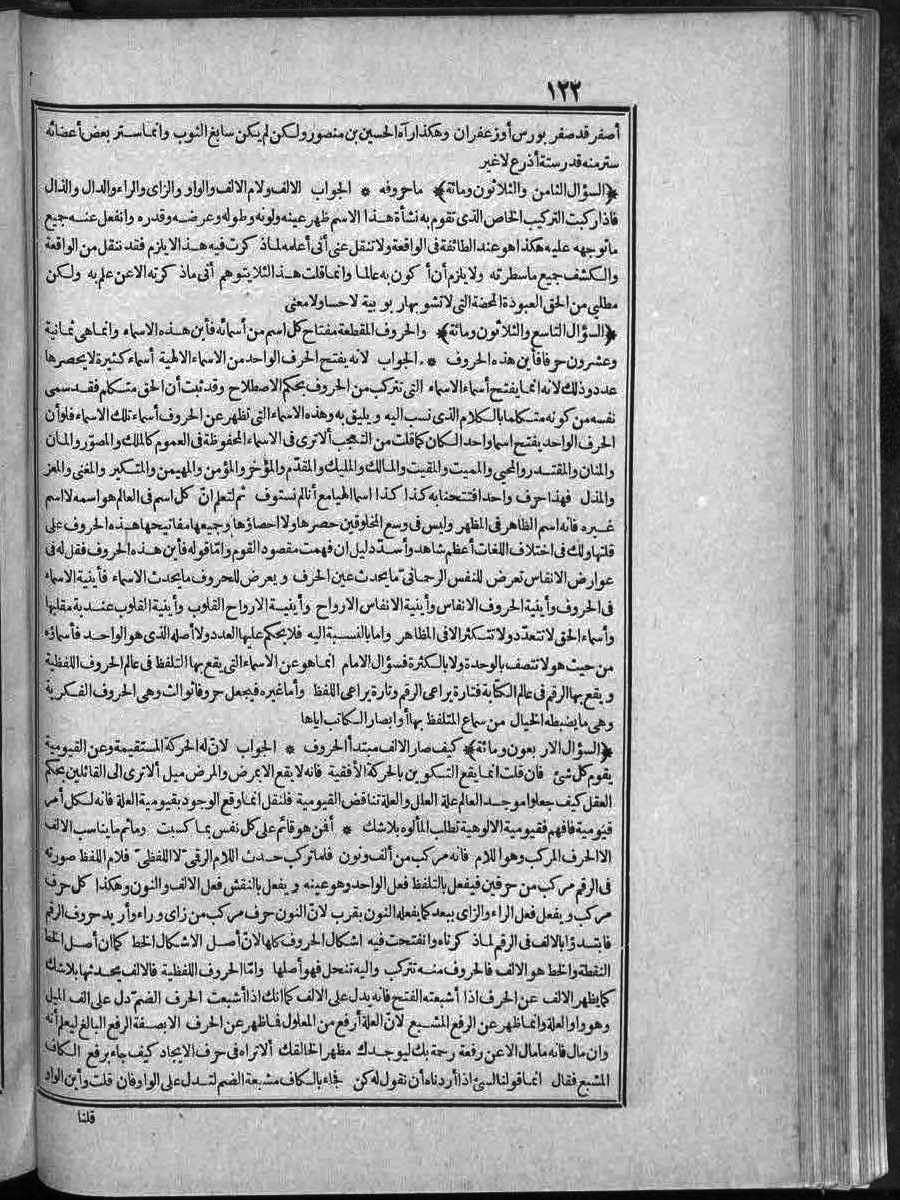 ١٢٢
أصفر قد صفر بورس أو زعفران وهكذا رآه الحسين بن منصور ولكن لم يكن سابغ الثوب وانما ستر بعض أعضائه
ستر منه قدر ستة أذرع لا غير
﴿السؤال الثامن والثلاثون ومائة﴾ ما حروفه * الجواب الالف ولام الالف والواو والزاى والراء والدال والذال
فاذا ركبت التركيب الخاص الذى تقوم به نشأة هذا الاسم ظهر عينه ولونه وطوله وعرضه وقدره وانفعل عنه جميع
ما توجهه عليه هكذا هو عند الطائفة فى الواقعة ولا تنقل عنى أنى أعلمه لما ذكرت فيه هذا لا يلزم فقد ننقل من الواقعة
والكشف جميع ما سطرته ولا يلزم أن أكون به عالما وانما قلت هذا لئلا يتوهم أنى ما ذكرته الا عن علم به ولكن
مطلبى من الحق العبودة المحضة التى لا تشوبها ربوبية لا حسا ولا معنى
﴿السؤال التاسع والثلاثون ومائة﴾ والحروف المقطعة مفتاح كل اسم من أسمائه فأين هذه الاسماء وانما هى ثمانية
وعشرون حرفا فأين هذه الحروف * الجواب لانه يفتح الحرف الواحد من الاسماء الالهية أسماء كثيرة لا يحصرها
عدد وذلك لانه انما يفتح أسماء الاسماء التى تتركب من الحروف بحكم الاصطلاح وقد ثبت أن الحق متكلم فقد سمى
نفسه من كونه متكلما بالكلام الذى نسب اليه ويليق به وهذه الاسماء التى تظهر عن الحروف أسماء تلك الاسماء فلو أن
الحرف الواحد يفتح اسما واحد الكان كما قلت من التعجب ألا ترى فى الاسماء المحفوظة فى العموم كالملك والمصوّر والمان
والمنان والمقتدر والمحيى والمميت والمقيت والمالك والمليك والمقدّم والمؤخر والمؤمن والمهيمن والمتكبر والمغنى والمعز
والمذل فهذا حرف واحد افتتحنا به كذا كذا اسما الهيا مع أنا لم نستوف ثم لتعلم انّ كل اسم فى العالم هو اسمه لا اسم
غيره فانه اسم الظاهر فى المظهر وليس فى وسع المخلوقين حصرها ولا احصاؤها وجميعها مفاتيحها هذه الحروف على
قلتها ولك فى اختلاف اللغات أعظم شاهد وأسدّ دليل ان فهمت مقصود القوم وامّا قوله فأين هذه الحروف فقل له فى
عوارض الانفاس تعرض للنفس الرحمانى ما يحدث عين الحرف ويعرض للحروف ما يحدث الاسماء فأينية الاسماء
فى الحروف وأينية الحروف الانفاس وأينية الانفاس الارواح وأينية الارواح القلوب وأينية القلوب عندية مقلبها
وأسماء الحق لا تتعدّد ولا تتكثر الا فى المظاهر واما بالنسبة اليه فلا يحكم عليها العدد ولا أصله الذى هو الواحد فأسماؤه
من حيث هو لا تتصف بالوحدة ولا بالكثرة فسؤال الامام انما هو عن الاسماء التى يقع بها التلفظ فى عالم الحروف اللفظية
ويقع بها الرقم فى عالم الكتابة فتارة يراعى الرقم وتارة يراعى اللفظ وأما غيره فيجعل حروفا ثوالث وهى الحروف الفكرية
وهى ما يضبطه الخيال من سماع المتلفظ بها أو ابصار الكاتب اياها
﴿السؤال الاربعون ومائة﴾ كيف صار الالف مبتدأ الحروف * الجواب لانّ له الحركة المستقيمة وعن القيومية
يقوم كل شئ فان قلت انما يقع التكوين بالحركة الأفقية فانه لا يقع الا بمرض والمرض ميل ألا ترى الى القائلين بحكم
العقل كيف جعلوا موجد العالم علة العلل والعلة تناقض القيومية فلنقل انما وقع الوجود بقيومية العلة فانه لكل أمر
قيومية فافهم فقيومية الالوهية تطلب المألوه بلا شك * أفمن هو قائم على كل نفس بما كسبت وما ثم ما يناسب الالف
الا الحرف المركب وهو اللام فانه مركب من ألف ونون فلما تركب حدث اللام الرقمى لا اللفظى فلام اللفظ صورته
فى الرقم مركب من حرفين فيفعل بالتلفظ فعل الواحد وهو عينه ويفعل بالنقش فعل الالف والنون وهكذا كل حرف
مركب ويفعل فعل الراء والزاى ببعد كما يفعله النون بقرب لانّ النون حرف مركب من زاى وراء وأريد حروف الرقم
فابتدؤا بالالف فى الرقم لما ذكرناه وانفتحت فيه اشكال الحروف كلها لانّ أصل الاشكال الخط كما ان أصل الخط
النقطة والخط هو الالف فالحروف منه تتركب واليه تنحل فهو أصلها وامّا الحروف اللفظية فالالف يحدثها بلا شك
كما يظهر الالف عن الحرف اذا أشبعته الفتح فانه يدل على الالف كما انك اذا أشبعت الحرف الضم دل على الف الميل
وهو واو العلة وانما ظهر عن الرفع المشبع لانّ العلة أرفع من المعلول فما ظهر عن الحرف الا بصفة الرفع البالغ ليعلم أنه
وان مال فانه ما مال الا عن رفعة رحمة بك ليوجدك مظهرا لخالقك ألا تراه فى حرف الايجاد كيف جاء برفع الكاف
المشبع فقال انما قولنا لشئ اذا أردناه أن نقول له كن فجاء بالكاف مشبعة الضم لتدل على الواو فان قلت وأين الواو
قلنا